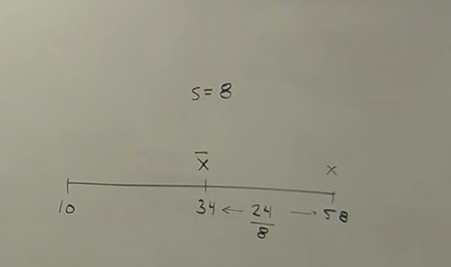 s=8
x̄ x
10 34 ← 24/8 → 58